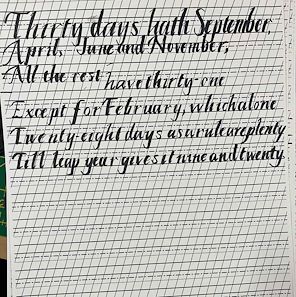 Thirty days hath September,
April, June and November,
All the rest have thirty-one
Except for February, which alone
Twenty-eight days as a rule are plenty
Till leap year gives it nine and twenty.